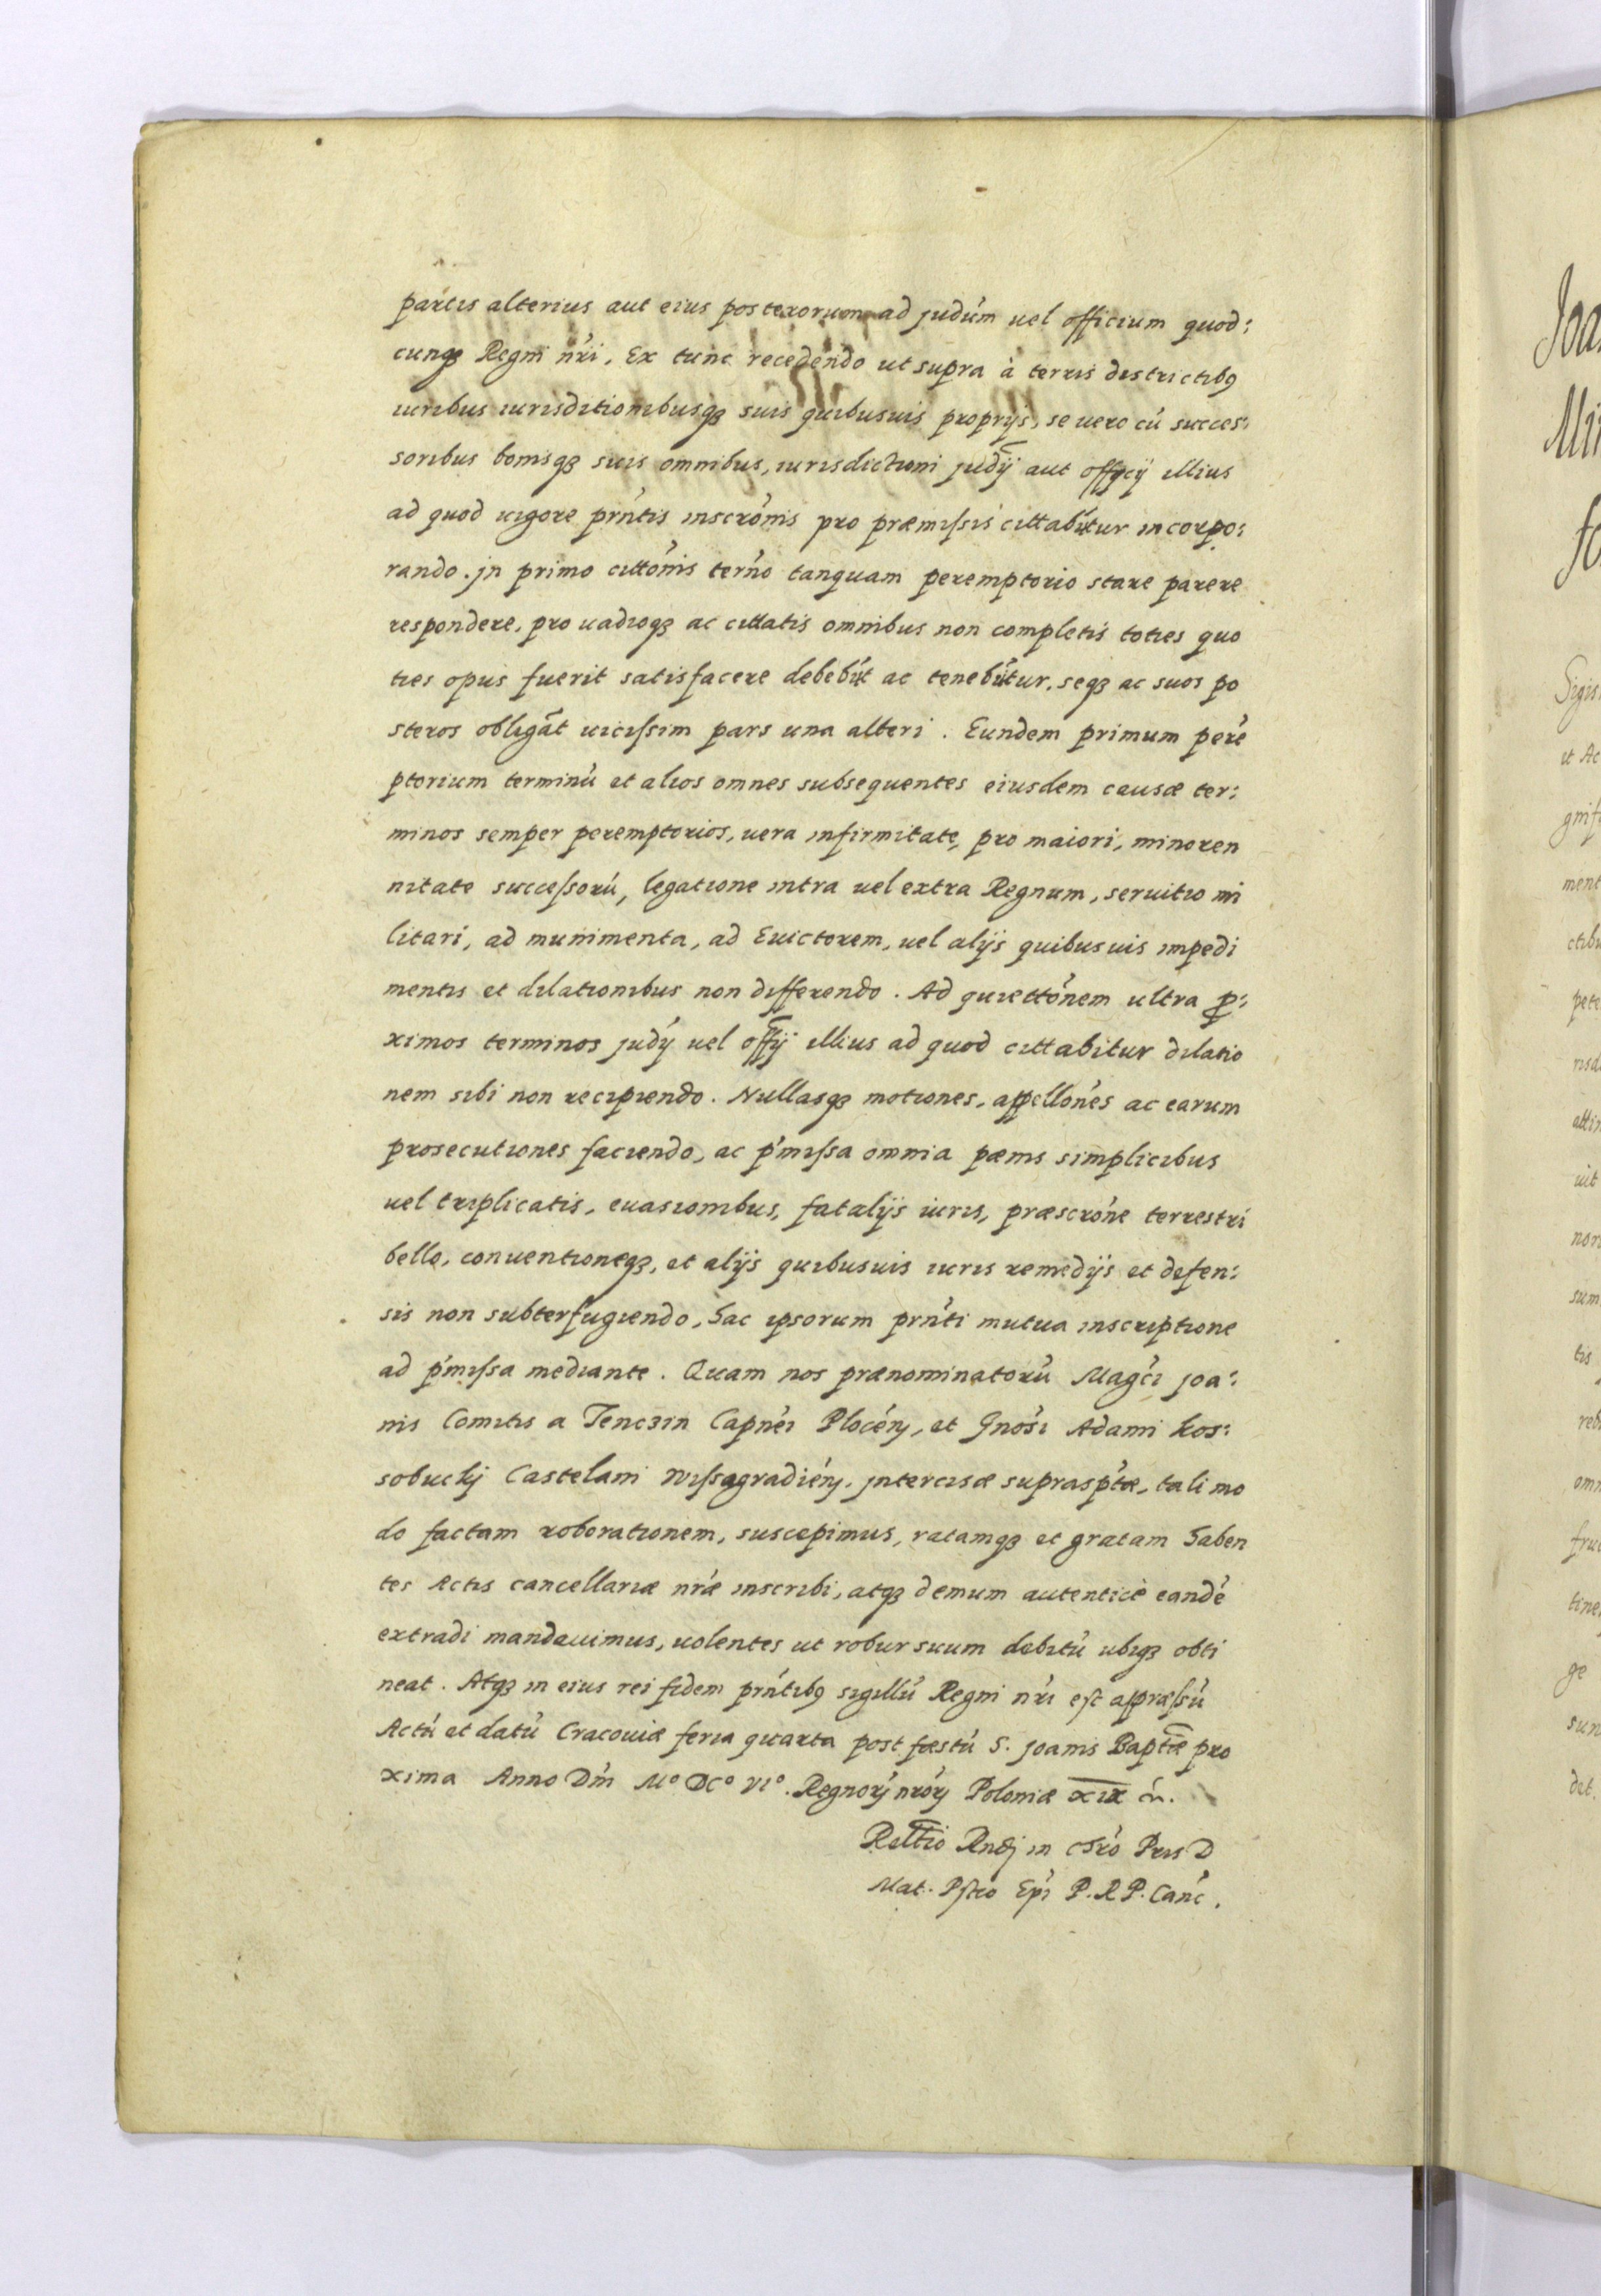 partis alterius aut eius posterorum ad judúm uel officium quod:
cunqꝫ Regni nr̃i. Ex tunc recedendo ut supra à terris districtibꝰ
iuribus iurisditionibusqꝫ suis quibusuis proprijs, se uero cū succes:
soribus bonisqꝫ suis omnibus, iurisdictioni judij aut officij illius
ad quod uigore prñtis inscrõnis pro præmissis cittabũtur incorpo:
rando. jn primo cittõnis terño tanquam peremptorio stare parere
respondere, pro uadioqꝫ ac cittatis omnibus non completis toties quo
ties opus fuerit satisfacere debebũt ac tenebũtur, seqꝫ ac suos po
steros obligãt uicissim pars una alteri. Eundem primum perẽ
ptorium terminũ et alios omnes subsequentes eiusdem causæ ter:
minos semper peremptorios, uera infirmitate, pro maiori, minoren
nitate successorũ, legatione intra uel extra Regnum, seruitio mi
litari, ad munimenta, ad Euictorem, uel alijs quibusuis impedi
mentis et dilationibus non differendo. Ad quiettõnem ultra ꝓ:
ximos terminos judij uel offij illius ad quod cittabitur dilatio
nem sibi non recipiendo. Nullasqꝫ motiones, appellõnes ac earum
prosecutiones faciendo, ac p̃missa omnia pænis simplicibus
uel triplicatis, euasionibus, fatalijs iuris, præscrõne terrestri
bello, conuentioneqꝫ, et alijs quibusuis iuris remedijs et defen:
sis non subterfugiendo, hac ipsorum prñti mutua inscriptione
ad p̃missa mediante. Quam nos prænominatorũ Magci joa:
nis Comitis a Tenczin Capnei Plocẽn, et Gnosi Adami kos:
sobuckj Castelani Wissagradiẽn, jntercisæ supraspt̃æ, tali mo
do factam roborationem, suscepimus, ratamqꝫ et gratam haben
tes Actis cancellariæ nr̃æ inscribi, atqꝫ demum autenticè eandẽ
extradi mandauimus, uolentes ut robur suum debitũ ubiqꝫ obti
neat. Atqꝫ in eius rei fidem prñtibꝰ sigillũ Regni nr̃i est appræssũ
Actũ et datũ Cracouiæ feria quarta post fæstũ S. joanis Baptæ pro
xima Anno Dñi Mº DCº VIº. Regnorꝝ nr̃orꝝ Poloniæ XIX
Reltio Rndj in Pris D
Mat. Pstro Epi P. R P. Canc.